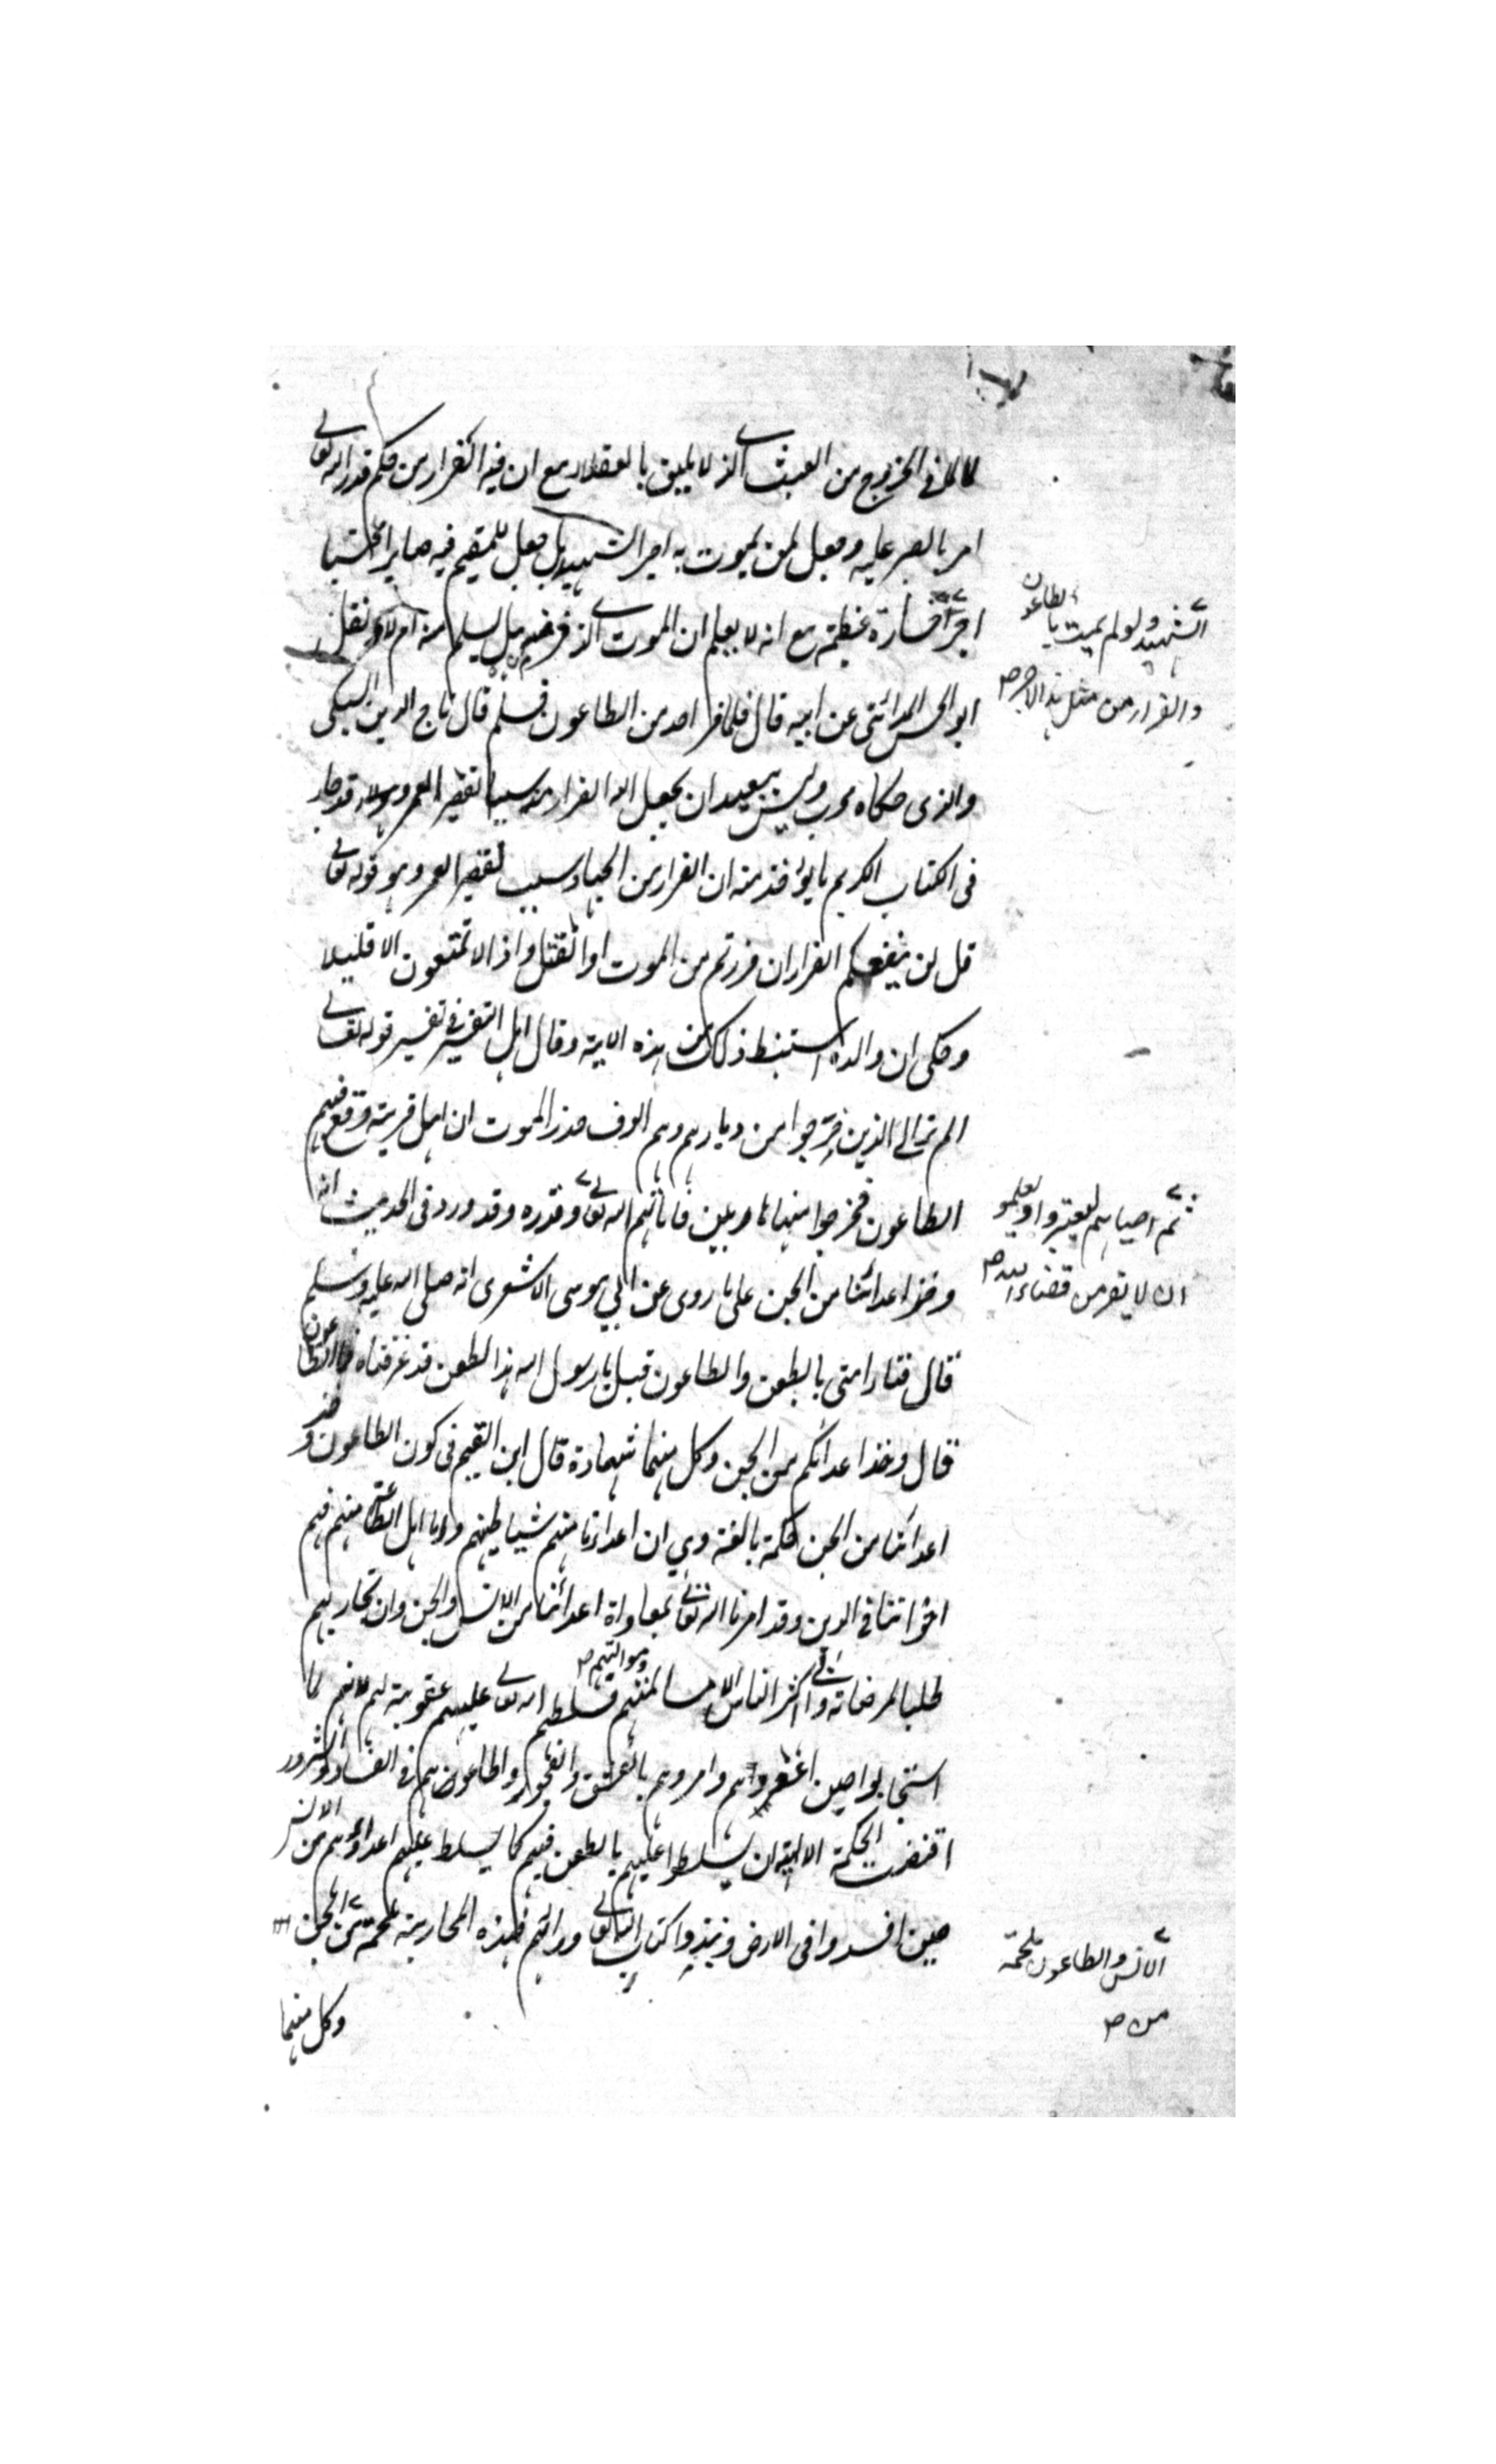 لما في الخروج من العبث الذي لا يليق بالعقلاء مع ان فيه الفرار من حكم قدر الله تعالى
امر بالصبر عليه وجعل لمن يموت به اجر الشهيد بل جعل للمقيم فيه صابرا محتسبا
اجر خسارة عظيمة مع انه لا يعلم ان الموت الذي فر منه هل يسلم منه ام لا ونقل
الشهيد ولو لم يمت بالطاعون
والفرار من مثل هذا الاجر صح
ابو الحسن المدائني عن ابيه قال قلما فر احد من الطاعون فسلم قال تاج الدين السبكي
والذي حكاه مجرب وليس ببعيد ان يجعل الله الفرار منه سببا لقصر العمر وقد جاء
في الكتاب الكريم ما يؤخذ منه ان الفرار من الجهاد سبب لقصر العمر وهو قوله تعالى
قل لن ينفعكم الفرار ان فررتم من الموت او القتل واذا لا تمتعون الا قليلا
وحكى ان والده استنبط ذلك من هذه الاية وقال اهل التفسير في تفسير قوله تعالى
الم تر الى الذين خرجوا من ديارهم وهم الوف حذر الموت ان اهل قرية وقع فيهم
الطاعون فخرجوا منها هاربين فاماتهم الله تعالى وقدره وقد ورد في الحديث انه
ثم احياهم ليعتبروا ويعلموا
ان لا يفر من قضاء الله صح
وخز اعدائنا من الجن على ما روى عن ابي موسى الاشعري انه صلى الله عليه وسلم
قال فناء امتي بالطعن والطاعون قيل يا رسول الله هذا الطعن قد عرفناه فما الطاعون
قال وخز اعدائكم من الجن وكل منهما شهادة قال ابن القيم في كون الطاعون وخز
اعدائنا من الجن حكمة بالغة وهي ان اعداءنا منهم شياطينهم واما اهل الطاعة منهم فهم
اخواننا في الدين وقد امرنا الله تعالى بمعاداة اعدائنا من الانس والجن وان نحاربهم
طلبا لمرضاته وابى اكثر الناس الا مسالمتهم وموالاتهم صح فسلطهم الله تعالى عليهم عقوبة لهم لانهم لما
استجابوا حين اغووهم وامروهم بالفسق والفجور واطاعوهم في الفساد والشرور
اقتضت الحكمة الالهية ان يسلطوا عليهم بالطعن فيهم كما يسلط عليهم اعداؤهم من الانس
حين افسدوا في الارض ونبذوا كتاب الله تعالى وراءهم فهذه المحاربة ملحمة من الجن
الانس والطاعون ملحمة
من صح
وكل منهما